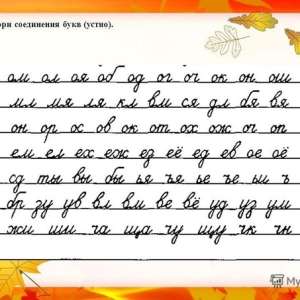 ори соединения букв (устно).
ом ол оя об од ог оч ок он ош
мл мя ля кл вм ся дл бя вя
он ор ос ов ок от ох ож оч оп
ем ел ех еж ед её ед ев ое оё
сд ты вы бы ья ъя ье ъе ьи ъ
бр зу ув вл вм ве вё уд уз ум
жи ши ча ща чу щу чк чн